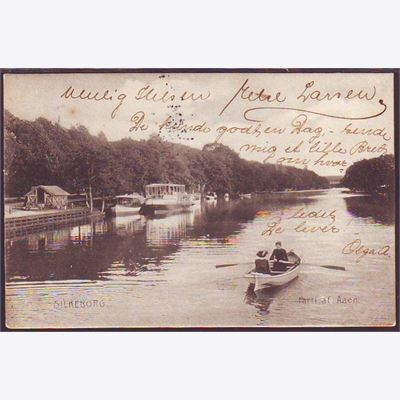 Venlig Hilsen Petre Larsen,
De kunde godt en Dag, sende
mig et lille Brev
om hvor
ledes
De lever
Olga A
SILKEBORG.
Parti af Aaen.